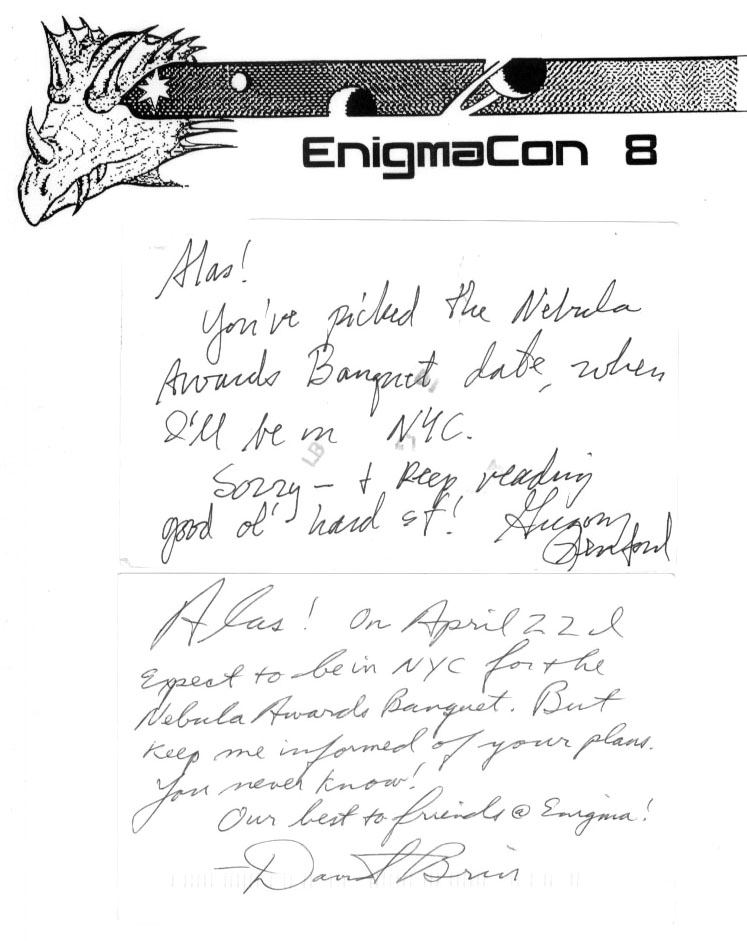 EnigmaCon 8
Alas!
You've picked the Nebula
Awards Banquet date, when
I'll be in NYC.
Sorry — & keep reading
good ol' hard sf! Gregory
Benford
Alas! On April 22 I
Expect to be in NYC for the
Nebula Awards Banquet. But
Keep me informed of your plans.
You never know!
Our best to friends @ Enigma!
—David Brin